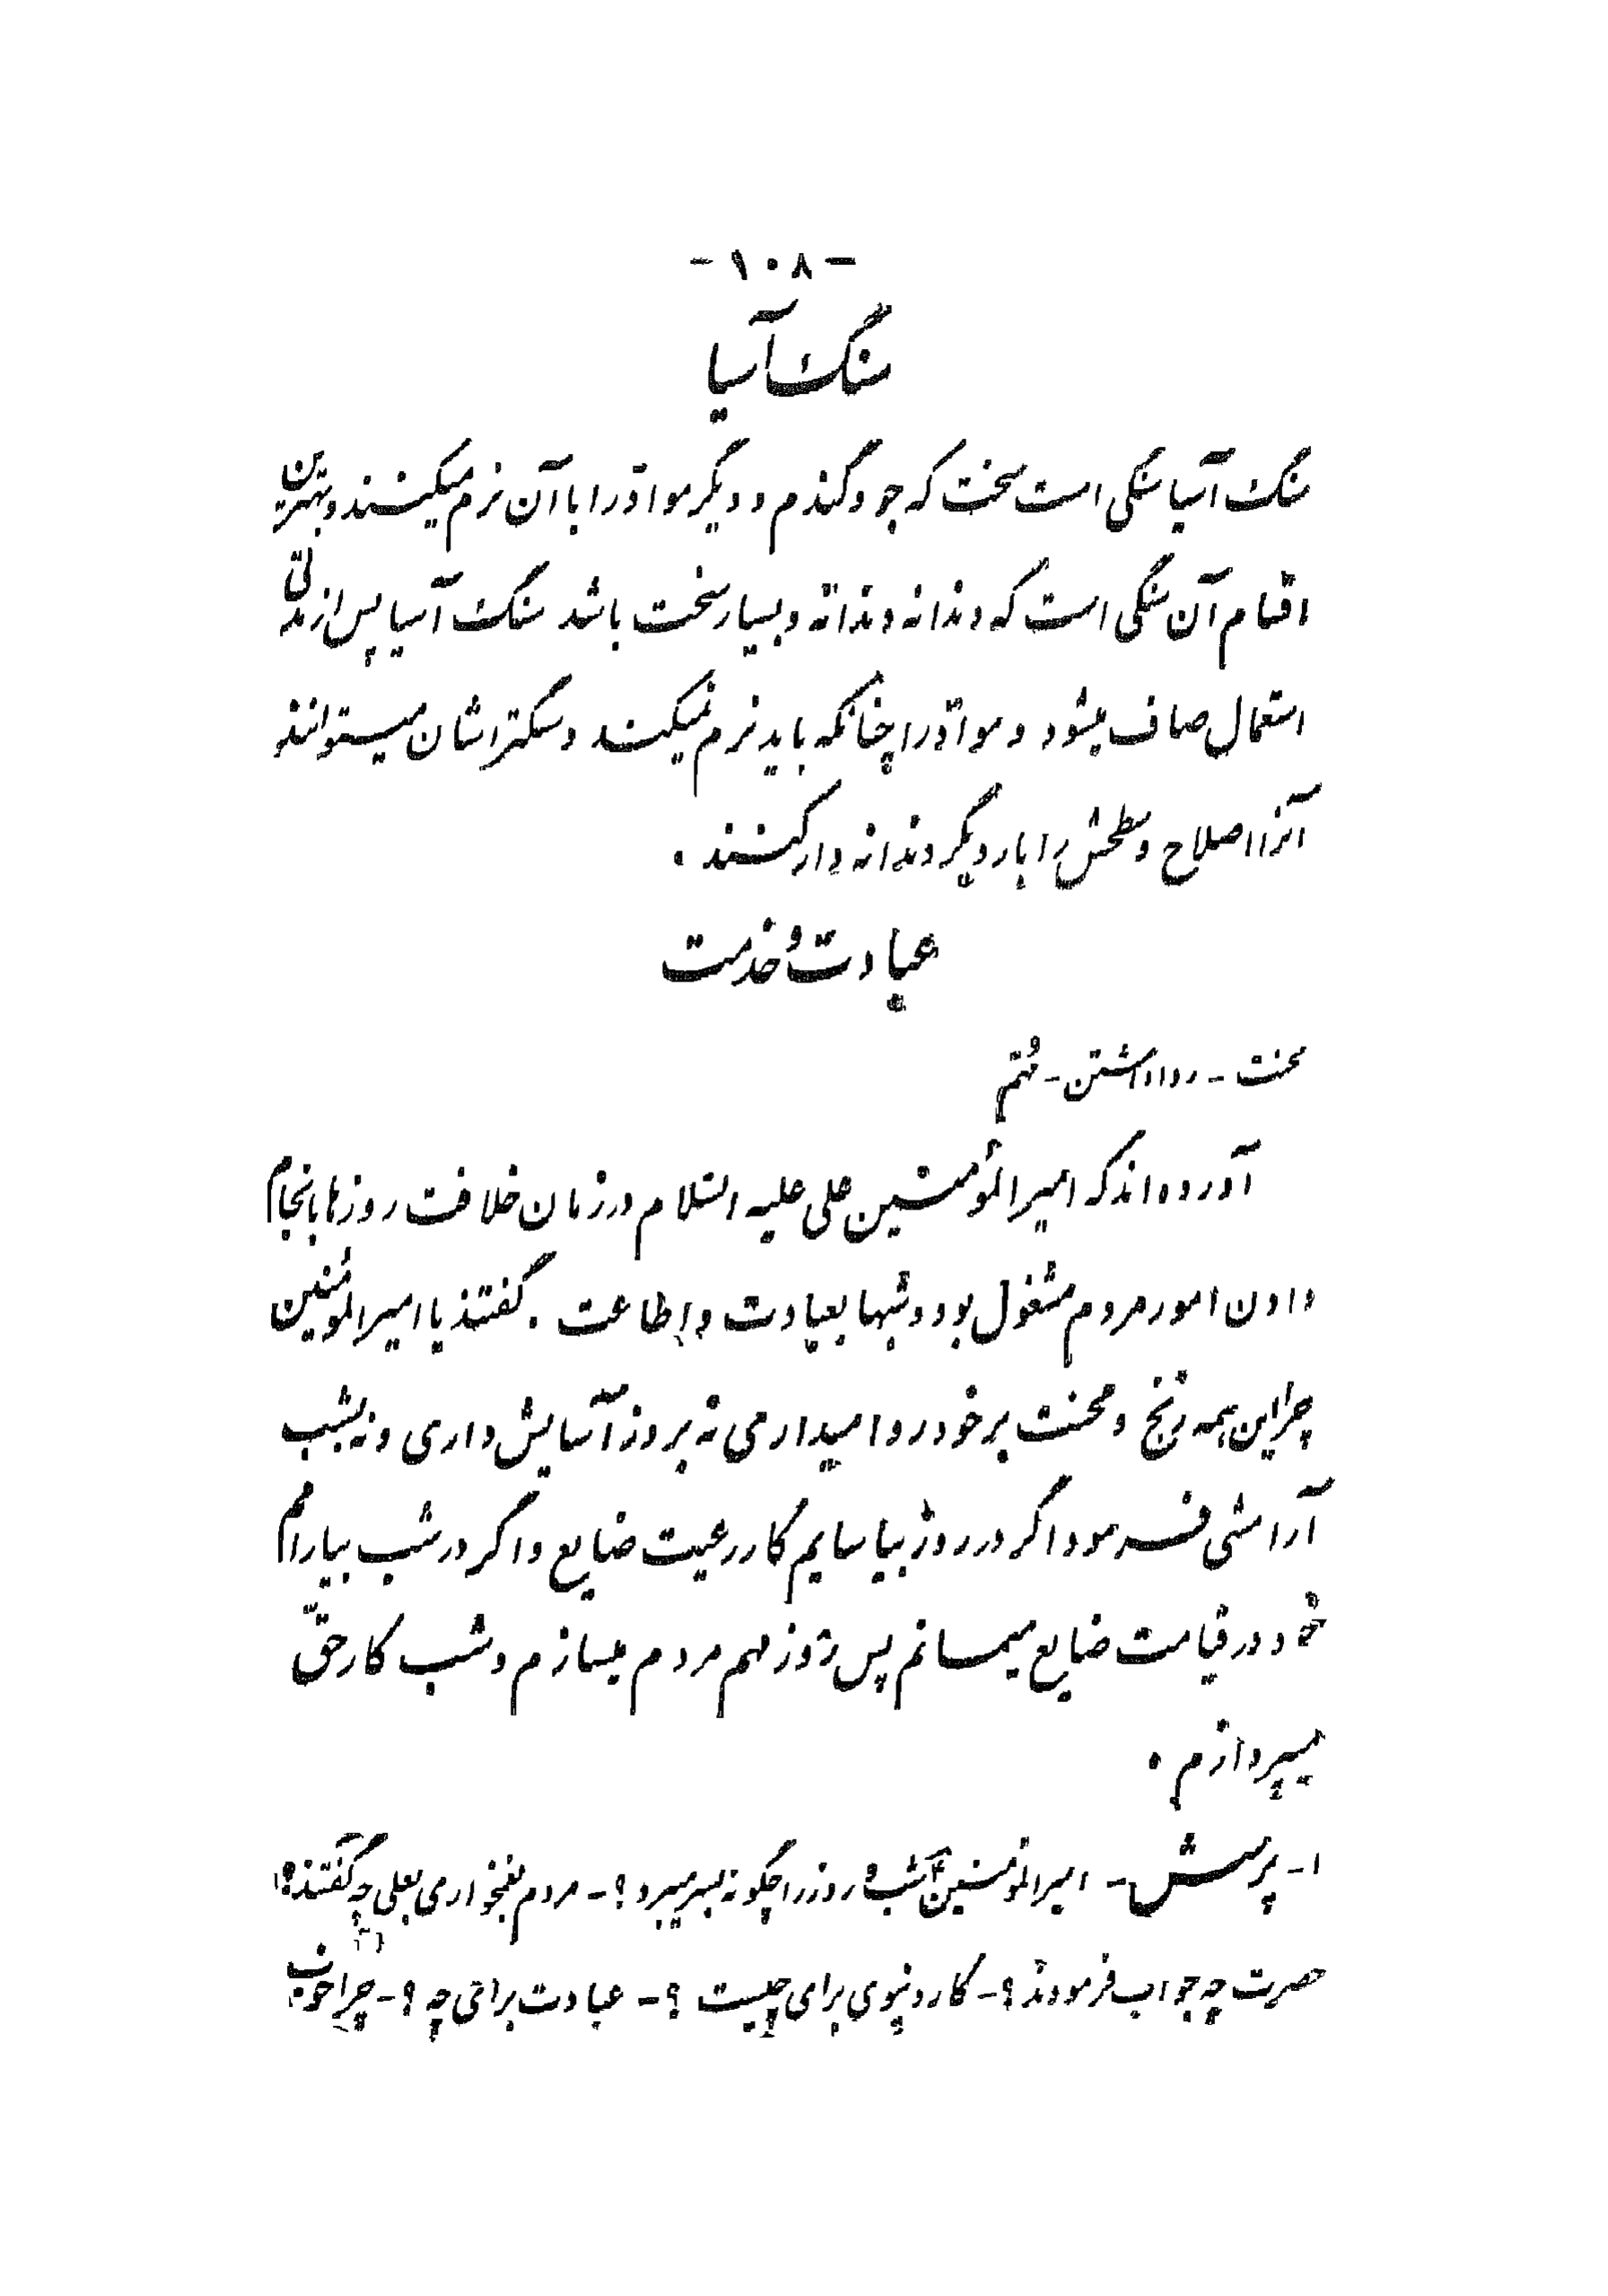 - ۱۰۸ -
سنگ آسیا
سنگ آسیا سنگی است سخت که جو و گندم و دیگر موادّ را با آن نرم میکنند و بهترین
اقسام آن سنگی است که دندانه دندانه و بسیار سخت باشد سنگ آسیا پس از مدتی
استعمال صاف میشود و موادّ را چنانکه باید نرم نمیکند و سنگتراشان میتوانند
آنرا اصلاح و سطحش را بار دیگر دندانه دار کنند .
عبادت و خدمت
محنت - روا داشتن - مُهم
آورده اند که امیرالمؤمنین علی علیه السّلام در زمان خلافت روزها بانجام
دادن امور مردم مشغول بود و شبها بعبادت و اِطاعت . گفتند یا امیرالمؤمنین
چرا این همه رنج و محنت بر خود روا میداری نه بروز آسایش داری و نه بشب
آرامشی فرمود اگر در روز بیاسایم کار رعیت ضایع و اگر در شب بیارامم
خود در قیامت ضایع میمانم پس روز مهم مردم میسازم و شب کار حقّ
میپردازم .
۱ - پرسش - امیرالمؤمنین ع شب و روز را چگونه بسر میبرد ؟ - مردم بغمخواری بعلی چه گفتند ؟
حضرت چه جواب فرمودند ؟ - کار دنیوی برای چیست ؟ - عبادت برای چه ؟ - چرا خوب